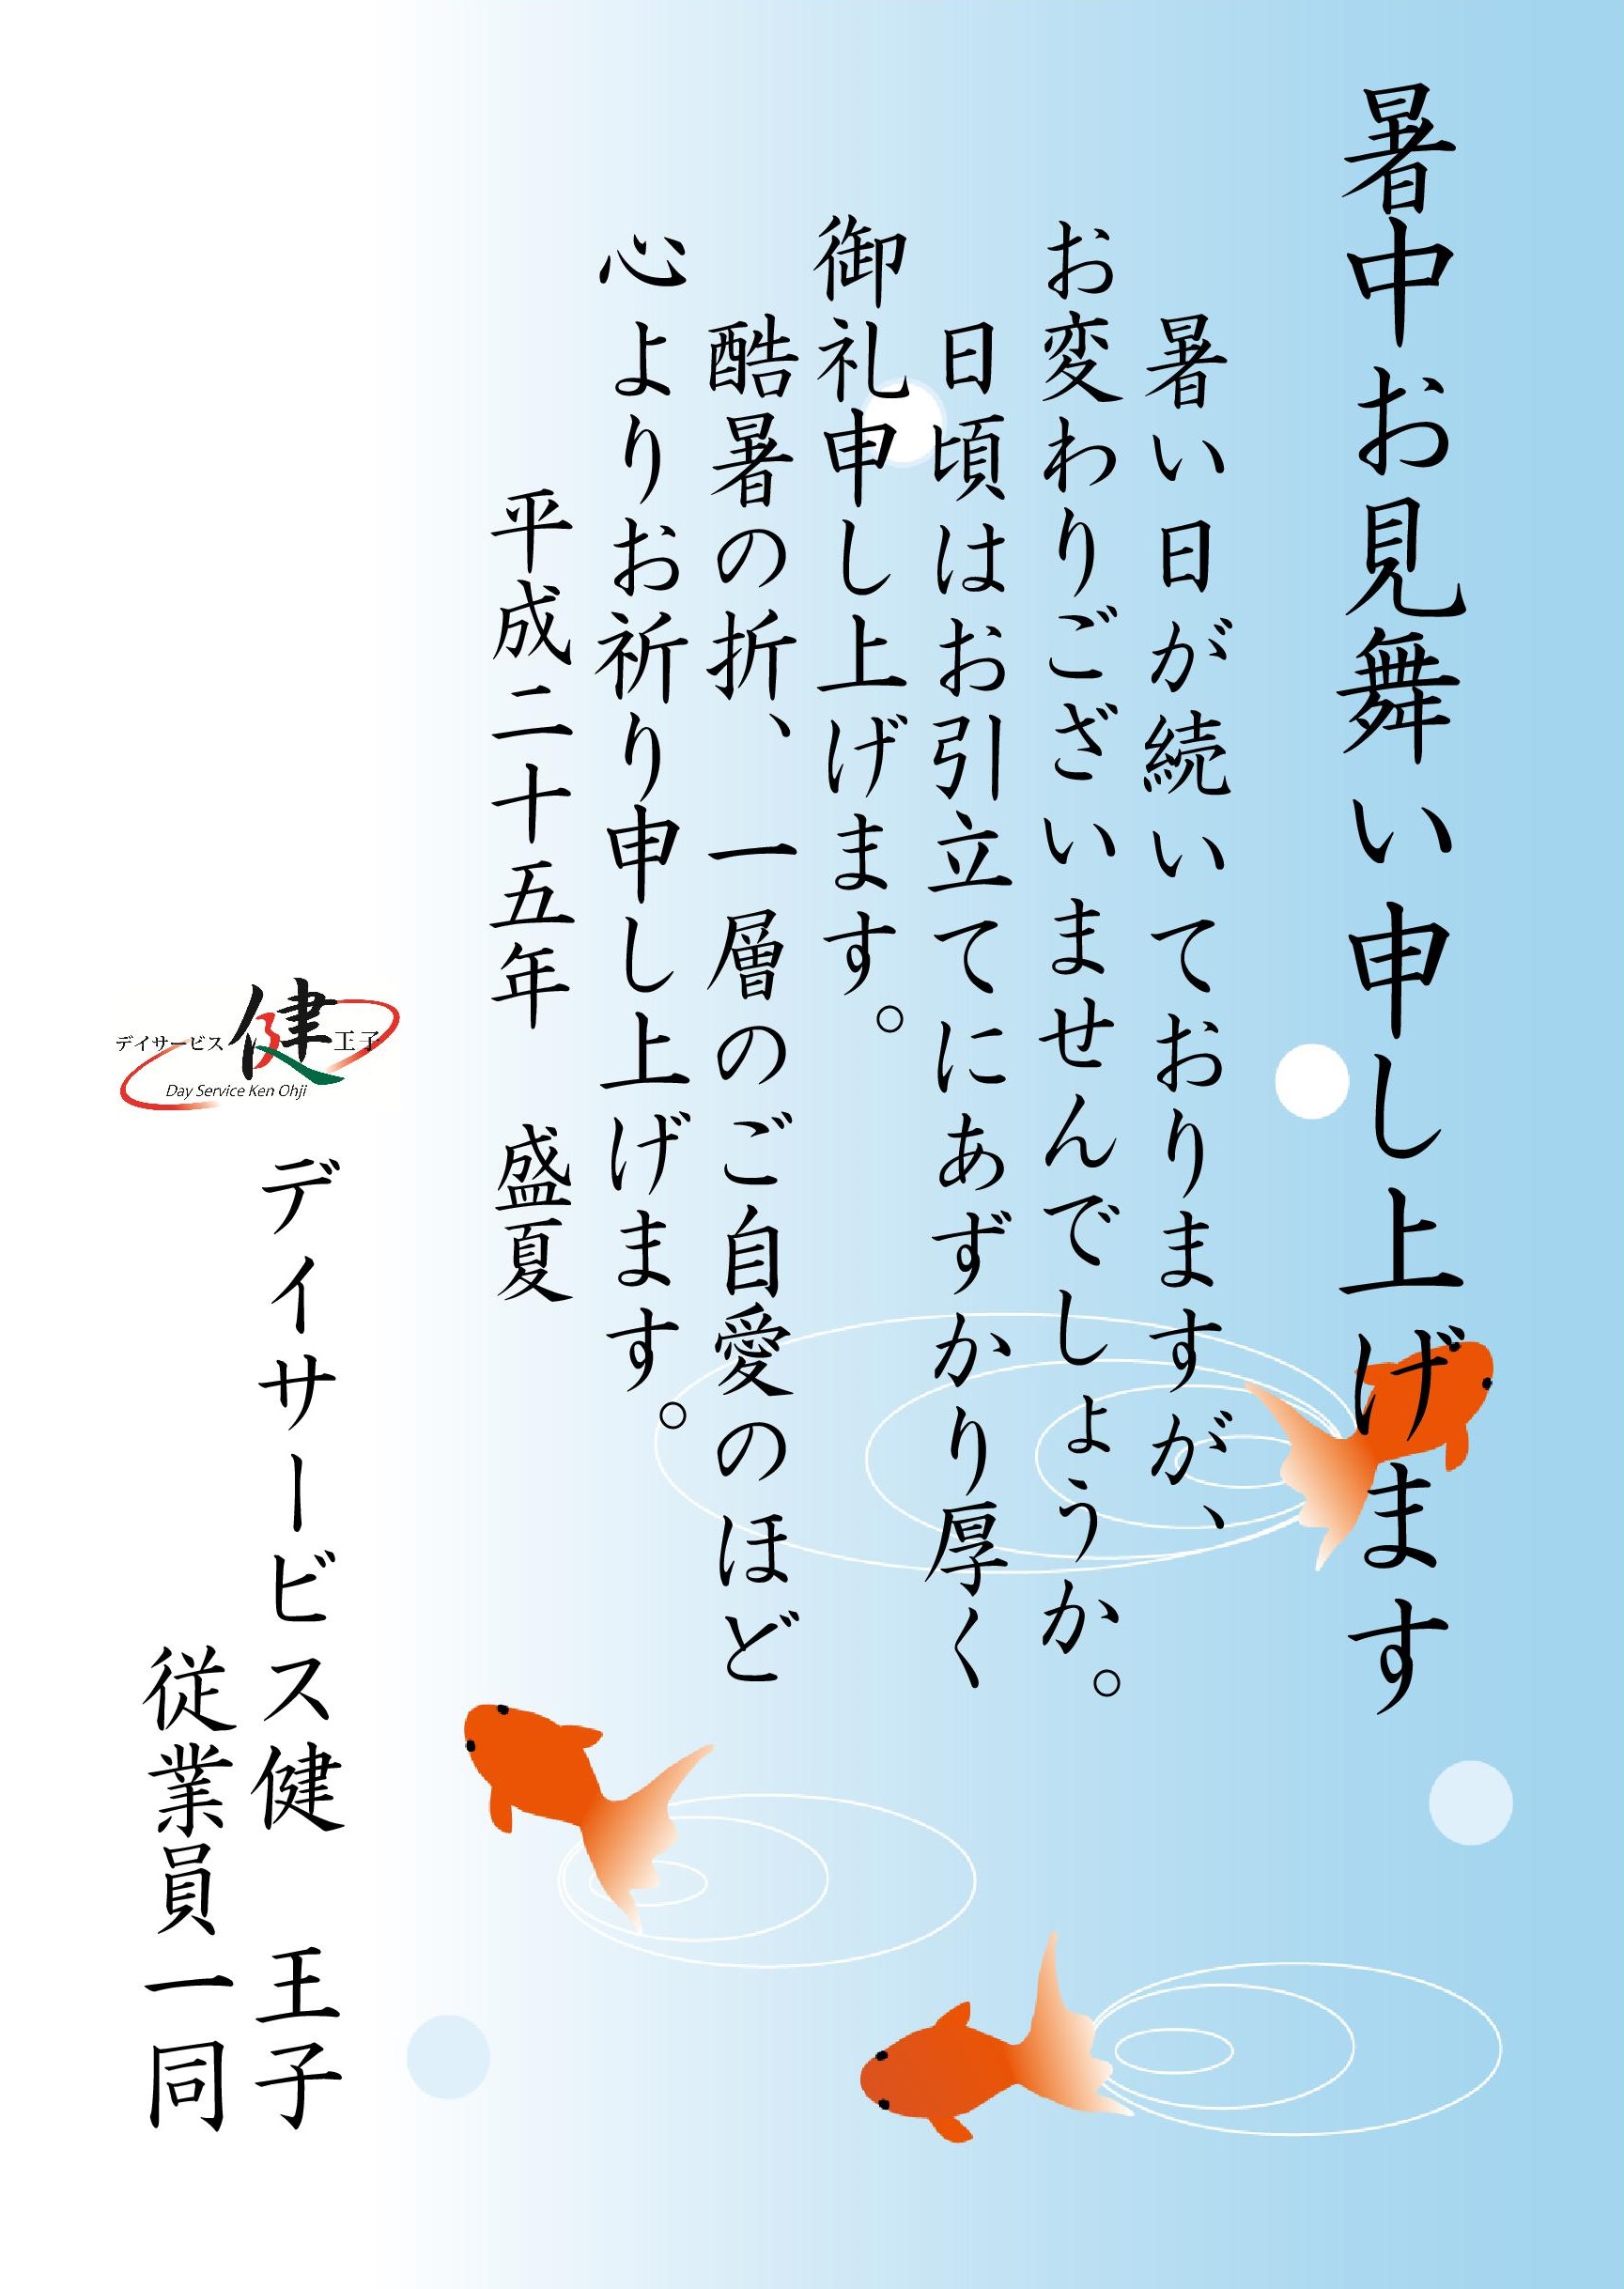 暑中お見舞い申し上げます
暑い日が続いておりますが、
お変わりございませんでしょうか。
日頃はお引立てにあずかり厚く
御礼申し上げます。
酷暑の折、一層のご自愛のほど
心よりお祈り申し上げます。
平成二十五年　盛夏
デイサービス健王子
Day Service Ken Ohji
デイサービス健　王子
従業員一同